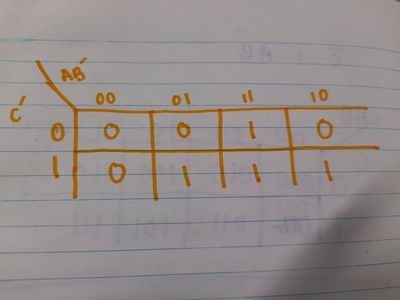 AB'
C'
00 01 11 10
0 0 0 1 0
1 0 1 1 1